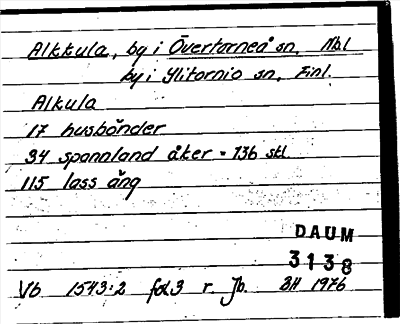 Alkkula, by i Övertorneå sn, Nbl
by i Ylitornio sn, Finl.
Alkula
17 husbönder
34 spannland åker = 136 skl.
115 lass äng
DAUM
3138
Vb 1543:2 fol 3 r. Jb. BH 1976